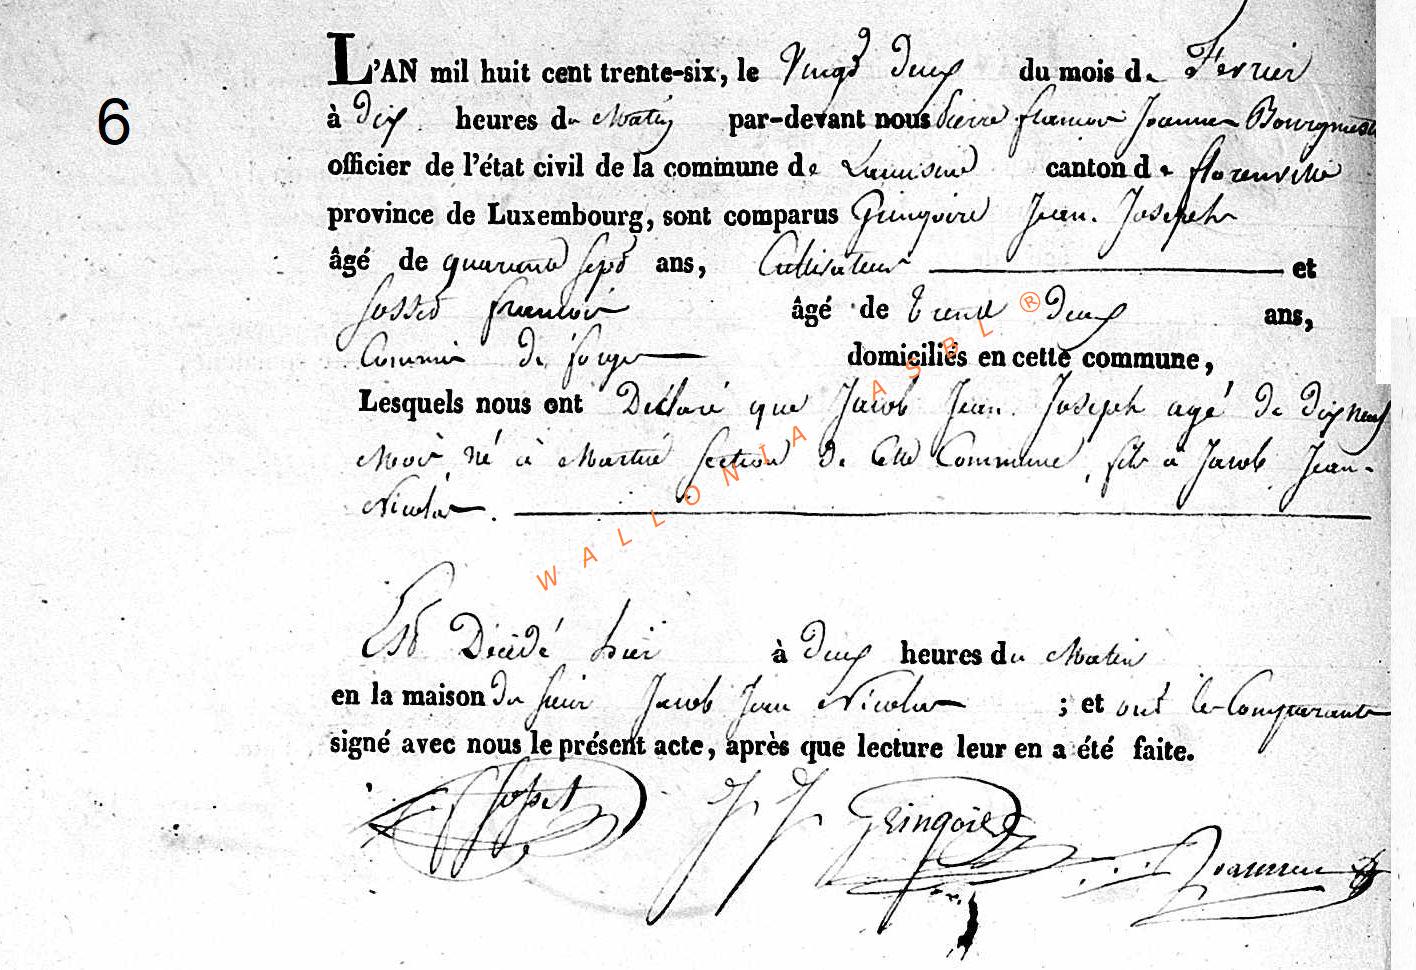 6
L'AN mil huit cent trente-six, le Vingt deux du mois de Fevrier
à dix heures du Matin par-devant nous Pierre françois Joannes Bourgmest
officier de l'état civil de la commune de canton de florenville
province de Luxembourg, sont comparus Gringoire Jean. Joseph
âgé de quarante sept ans, Cultivateur et
Josset francois âgé de trente deux ans,
Commis de forge domiciliés en cette commune,
Lesquels nous ont Déclaré que Jacob Jean Joseph agé de dix neuf
Mois, né à Martué section de cette Commune, fils à Jacob Jean-
Nicolas.
Est Décédé hier à deux heures du Matin
en la maison du sieur Jacob Jean Nicolas ; et ont les Comparants
signé avec nous le présent acte, après que lecture leur en a été faite.
F Josset J J Gringoire Joannes
WALLONIA ASBL ®